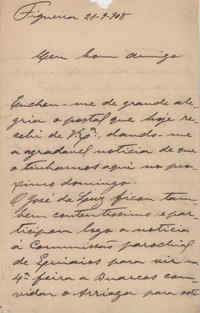 Figueira 21-9-908
Meu bom amigo
Encheu-me de grande ale-
gria o postal que hoje re-
cebi de V. Exª. dando-me
a agradavel noticia de que
o tenhamos aqui no pro-
ximo domingo.
O José da Luz ficou tam-
bem contentissimo e par-
ticipou logo a noticia
á Commissão parochial
de Quiaios para vir na
4ª feira a Buarcos con-
vidar o Arriaga para